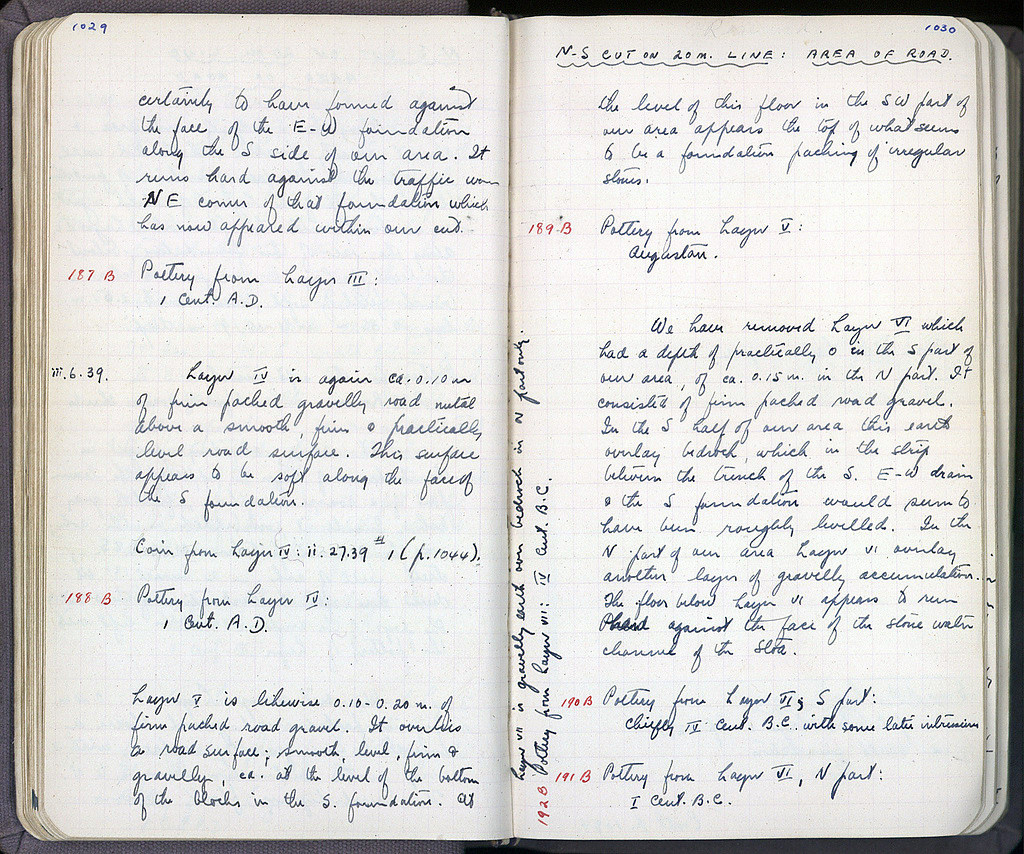 1029
certainly to have formed against
the face of the E-W foundation
along the S side of our area. It
runs hard against the traffic worn
NE corner of that foundation which
has now appeared within our cut.
187 B Pottery from Layer III:
1 Cent. A.D.
iii.6.39. Layer IV is again ca. 0.10 m
of firm packed gravelly road metal
above a smooth, firm & practically
level road surface. This surface
appears to be soft along the face of
the S foundation.
Coin from Layer IV: ii.27.39 #1 (p.1044).
188 B Pottery from Layer IV:
1 Cent. A.D.
Layer V is likewise 0.10-0.20 m. of
firm packed road gravel. It overlies
a road surface; smooth, level, firm &
gravelly, ca. at the level of the bottom
of the blocks in the S. foundation. At
1030
N-S CUT ON 20 M. LINE: AREA OF ROAD.
the level of this floor in the SW part of
our area appears the top of what seems
to be a foundation packing of irregular
stones.
189-B Pottery from Layer V:
Augustan.
We have removed Layer VI which
had a depth of practically 0 in the S part of
our area, of ca. 0.15 m. in the N part. It
consisted of firm packed road gravel.
In the S half of our area this earth
overlay bedrock, which in the strip
between the trench of the S. E-W drain
& the S foundation would seem to
have been roughly levelled. In the
N part of our area Layer VI overlay
another layer of gravelly accumulation.
The floor below Layer VI appears to run
against the face of the stone water
channel of the Stoa.
190 B Pottery from Layer VI, S part:
Chiefly IV Cent. B.C. with some later intrusions
191 B Pottery from Layer VI, N part:
I Cent. B.C.
Layer VII is gravelly earth over bedrock in N part only.
192 B Pottery from Layer VII: IV Cent. B.C.